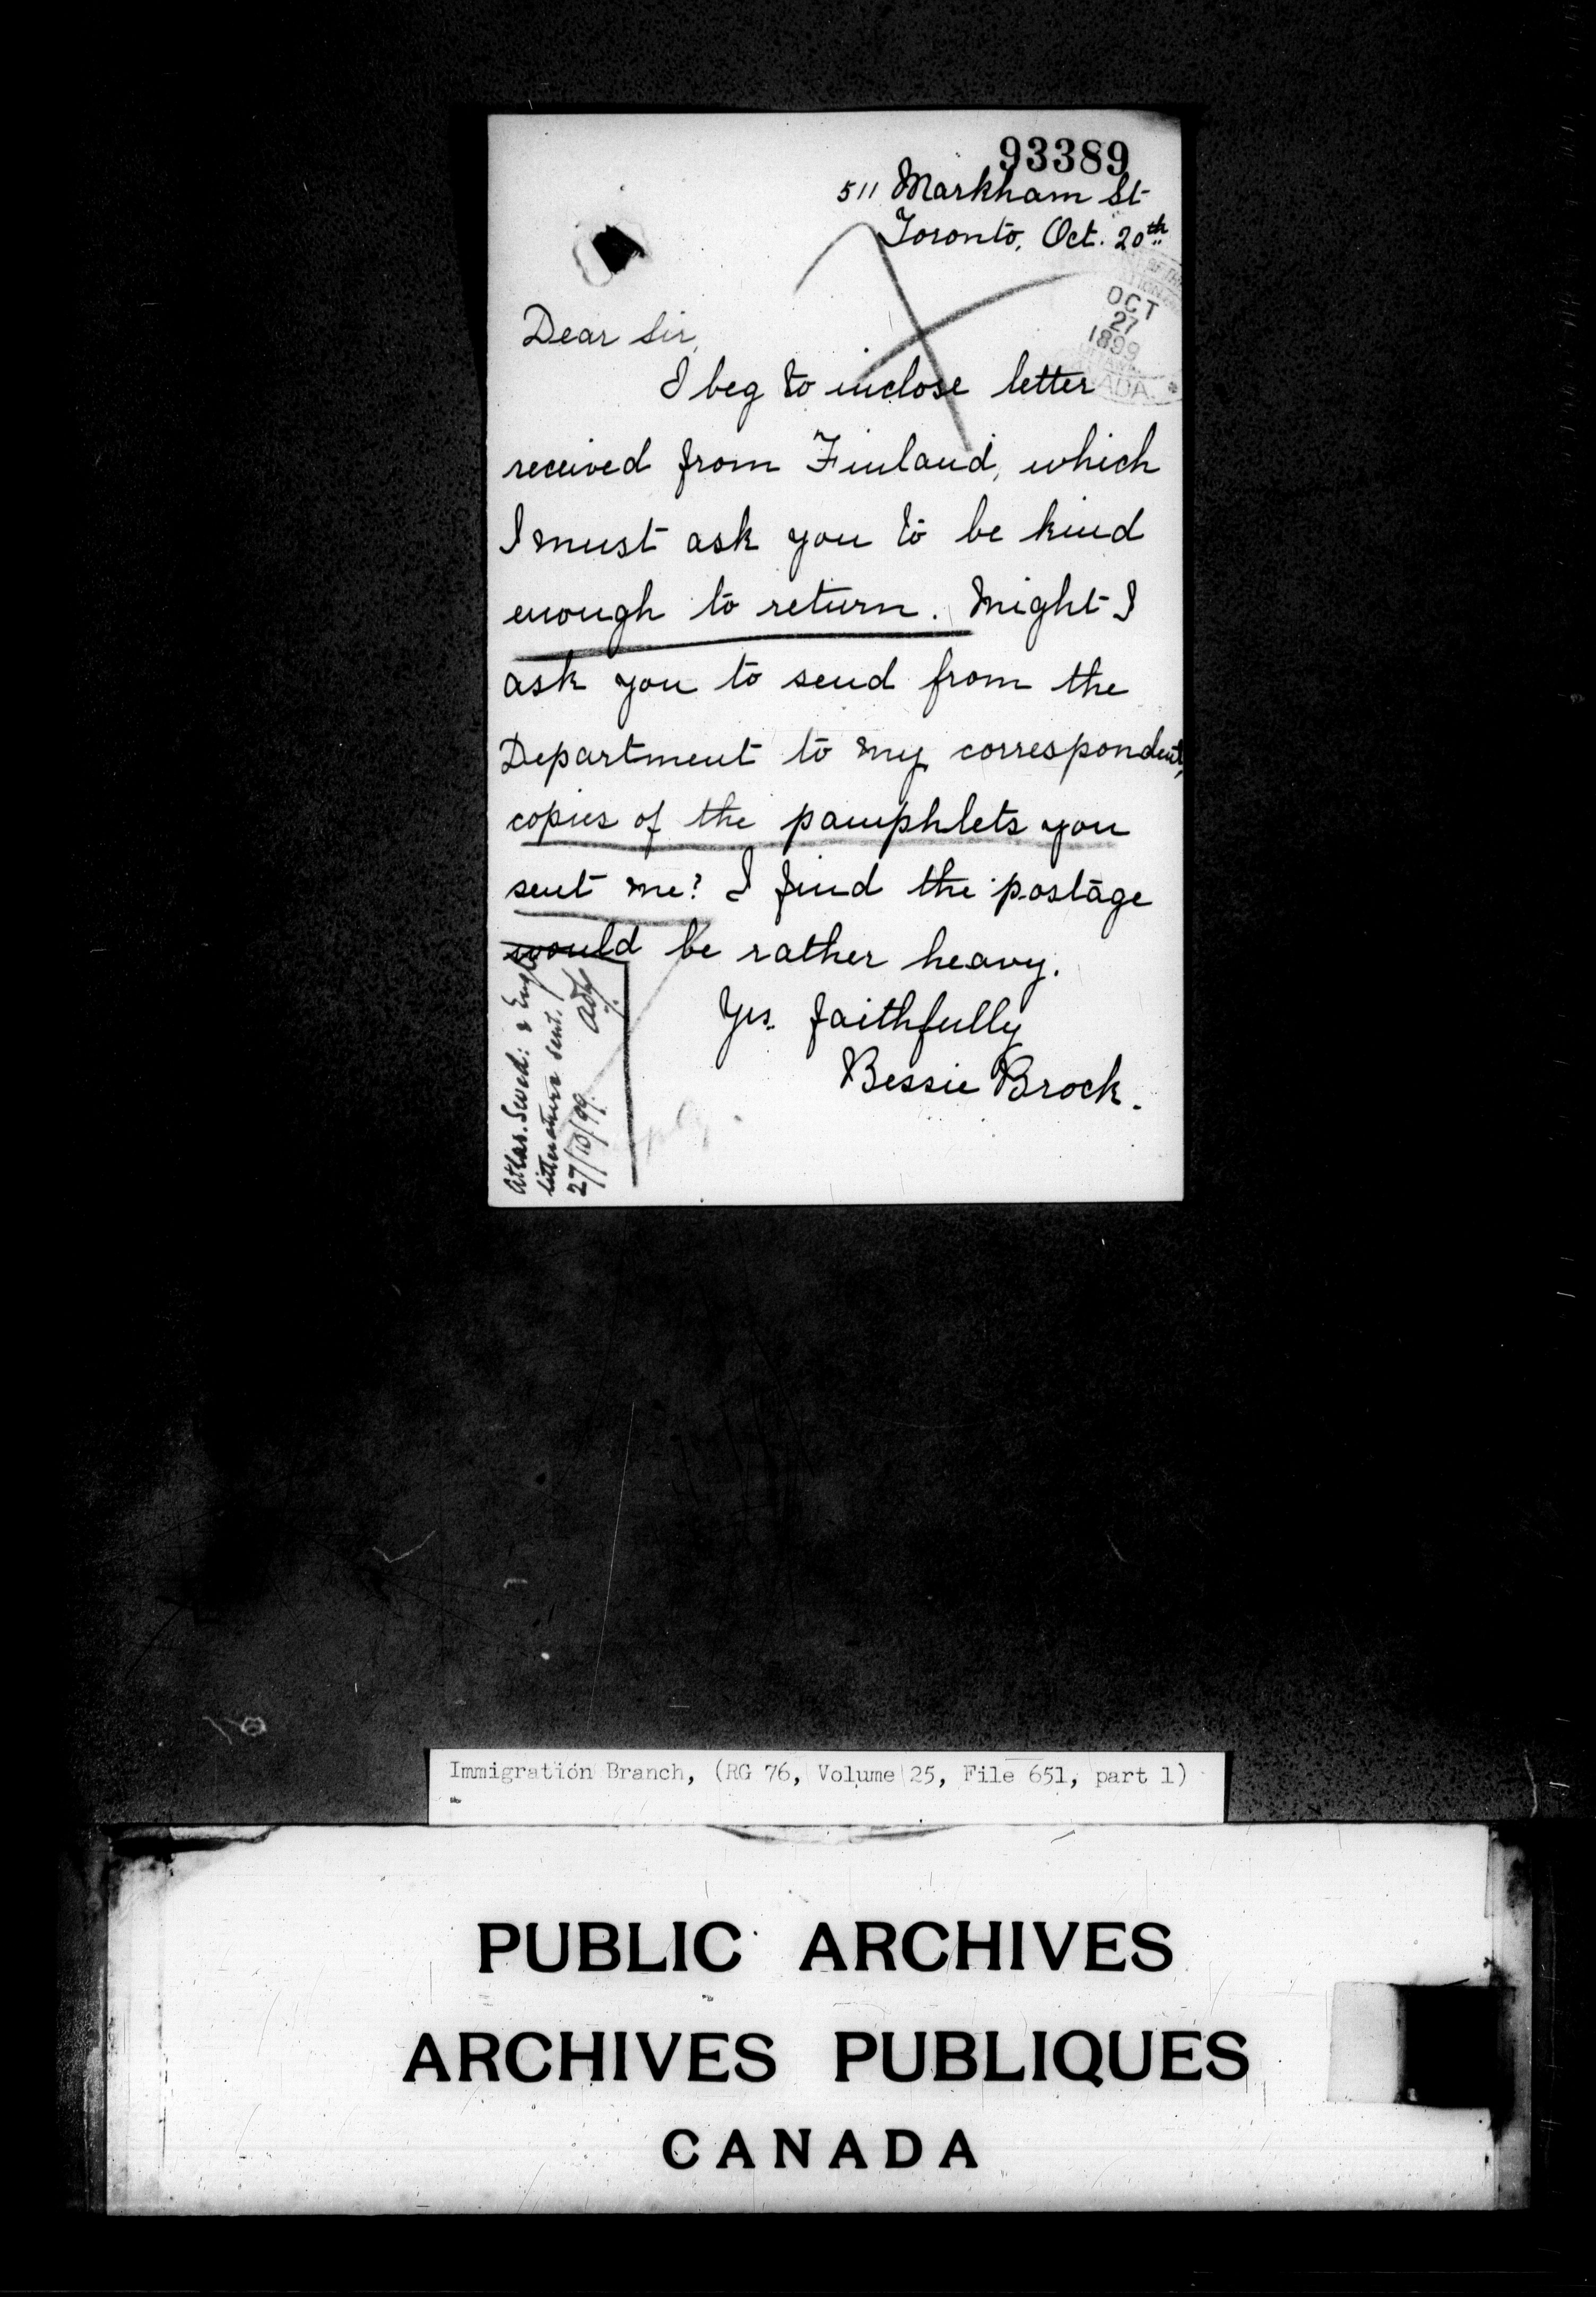 93389
511 Markham St
Toronto, Oct. 20th
OCT
27
1899
CANADA.
Dear Sir,
I beg to inclose letter
received from Finland, which
I must ask you to be kind
enough to return. Might I
ask you to send from the
Department to my correspondent,
copies of the pamphlets you
sent me? I find the postage
would be rather heavy.
Yrs. faithfully
Bessie Brock.
Atlas. Swed: & Engl
litterature sent.
27/10/99.
Immigration Branch, (RG 76, Volume 25, File 651, part 1)
PUBLIC ARCHIVES
ARCHIVES PUBLIQUES
CANADA